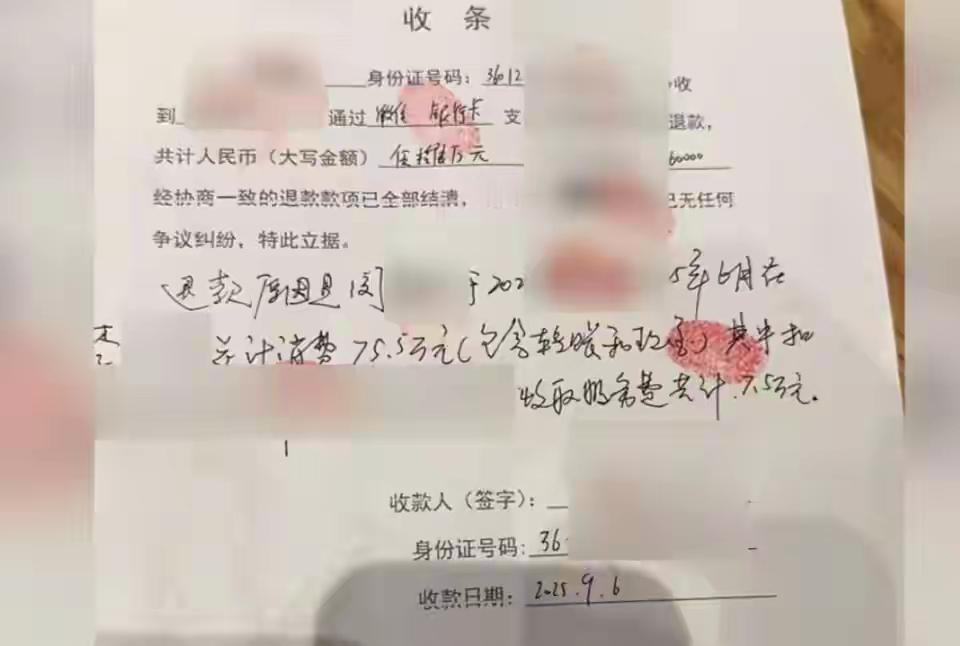 收 条
身份证号码：3612 收
到 通过 微信 银行卡 支 退款，
共计人民币（大写金额） 伍拾陆万元 60000
经协商一致的退款款项已全部结清， 已无任何
争议纠纷，特此立据。
退款原因是因 于202 5年6月在
共计消费75.5万元（包含 和 ）其中扣
收取服务费共计7.5万元。
收款人（签字）：
身份证号码：36
收款日期：2025.9.6